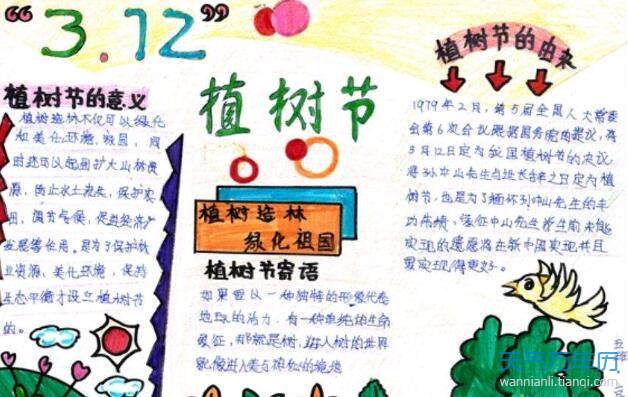 “3.12”
植树节
植树节的意义
植树造林不仅可以绿化
和美化环境、校园，同
时还可以起到扩大山林资
源、防止水土流失，保护农
田，调节气候，促进经济
发展等作用。是为了保护林
业资源、美化环境，保持
生态平衡才设立植树节
的。
植树造林
绿化祖国
植树节寄语
如果要以一种独特的形象代表
地球的活力，有一种单纯的生命
象征，那就是树，进入树的世界
就像进入美与神秘的境地
植树节的由来
1979年2月，第5届全国人大常委
会第6次会议根据国务院的提议，将
3月12日定为我国植树节的决议
将孙中山先生与世长辞之日定为植
树节，也是为了缅怀孙中山先生的丰
功伟绩，象征中山先生生前未能
实现的遗愿将在新中国实现并且
要实现得更好。
天气万年历
wannianli.tianqi.com